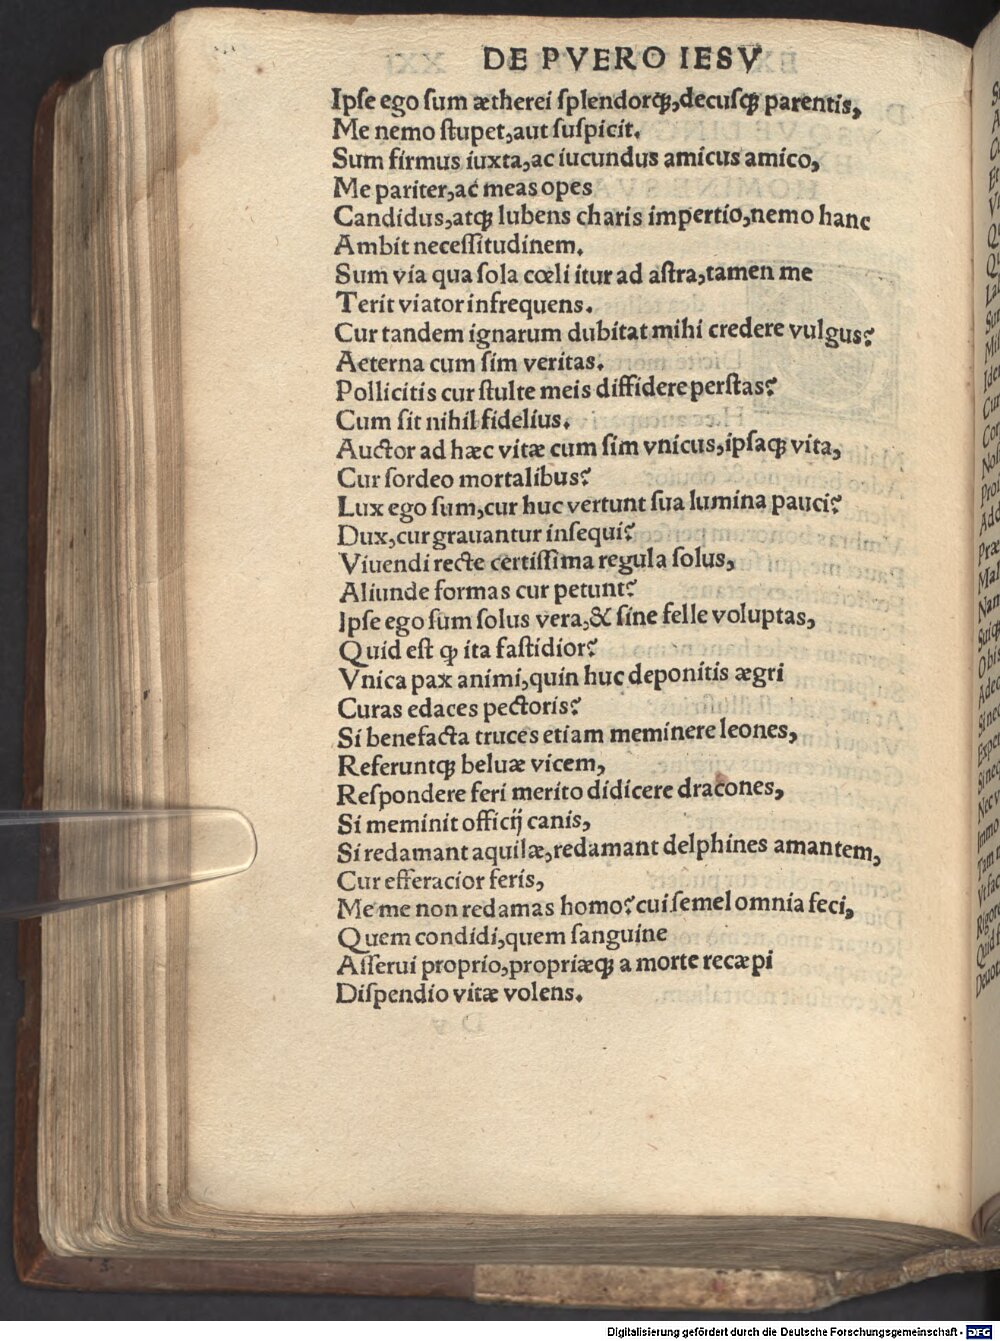 DE PVERO IESV
Ipſe ego ſum ætherei ſplendorqꝫ,decuſqꝫ parentis,
Me nemo ſtupet,aut ſuſpicit.
Sum firmus iuxta,ac iucundus amicus amico,
Me pariter,ac meas opes
Candidus,atqꝫ lubens charis impertio,nemo hanc
Ambit neceſſitudinem.
Sum via qua ſola cœli itur ad aſtra,tamen me
Terit viator infrequens.
Cur tandem ignarum dubitat mihi credere vulgus?
Aeterna cum ſim veritas.
Pollicitis cur ſtulte meis diffidere perſtas?
Cum ſit nihil fidelius.
Auctor ad hæc vitæ cum ſim vnicus,ipſaqꝫ vita,
Cur ſordeo mortalibus?
Lux ego ſum,cur huc vertunt ſua lumina pauci?
Dux,cur grauantur inſequi?
Viuendi recte certiſſima regula ſolus,
Aliunde formas cur petunt?
Ipſe ego ſum ſolus vera,& ſine felle voluptas,
Quid eſt ꝙ ita faſtidior?
Vnica pax animi,quin huc deponitis ægri
Curas edaces pectoris?
Si benefacta truces etiam meminere leones,
Referuntqꝫ beluæ vicem,
Reſpondere feri merito didicere dracones,
Si meminit officij canis,
Si redamant aquilæ,redamant delphines amantem,
Cur efferacior feris,
Me me non redamas homo?cui ſemel omnia feci,
Quem condidi,quem ſanguine
Aſſerui proprio,propriæqꝫ a morte recæpi
Diſpendio vitæ volens.
Digitalisierung gefördert durch die Deutsche Forschungsgemeinschaft - DFG